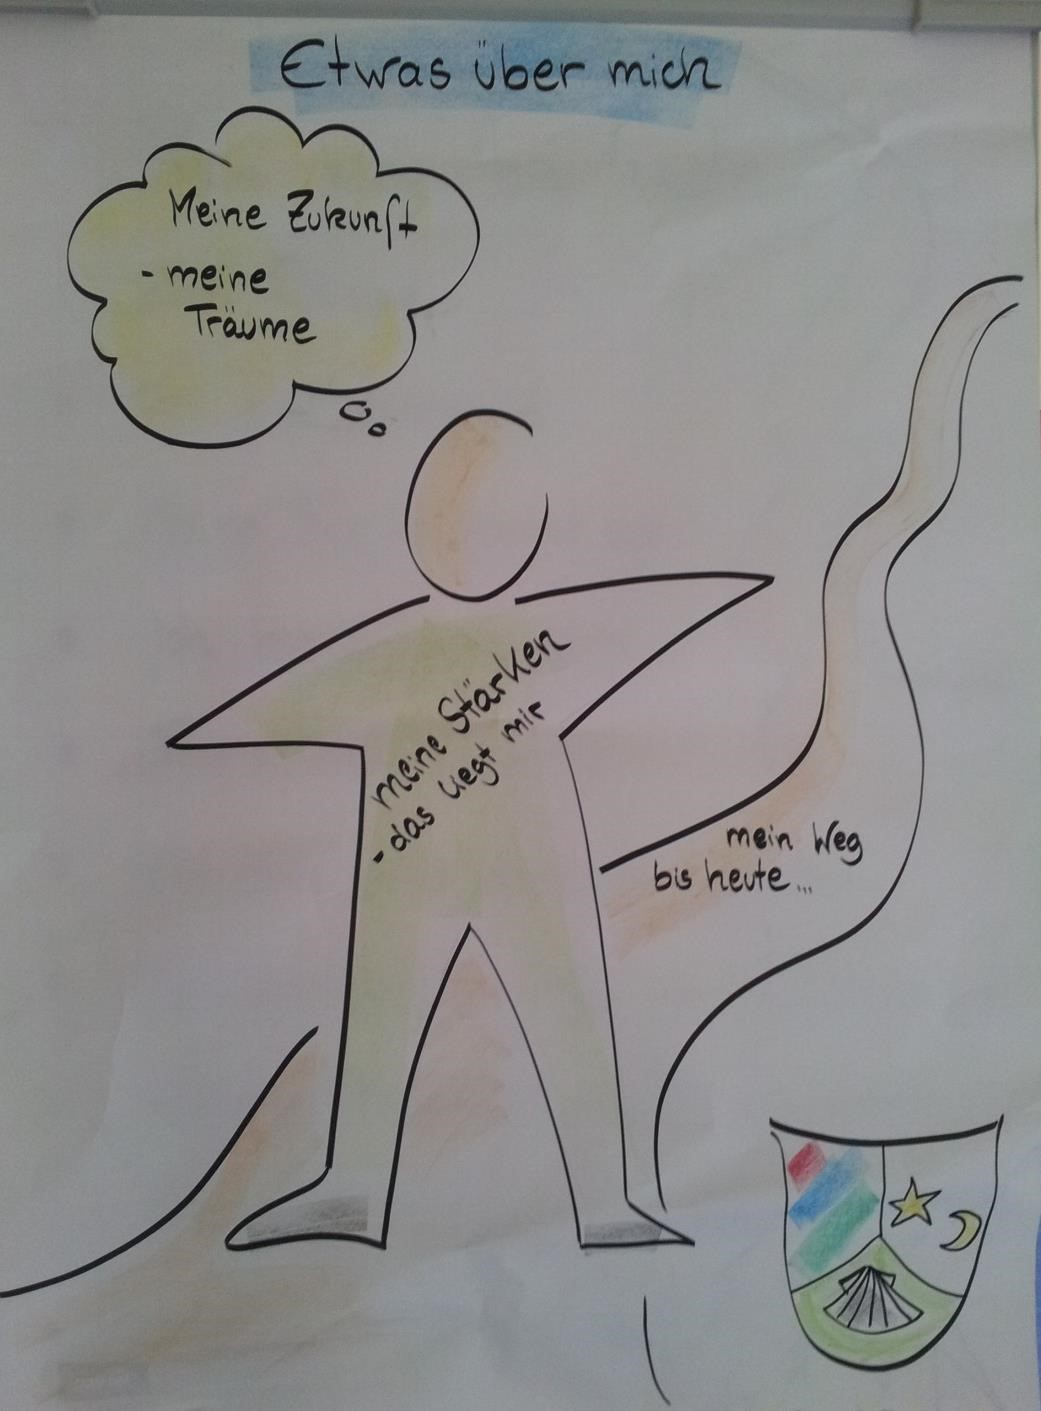 Etwas über mich
Meine Zukunft
- meine
Träume
meine Stärken
- das liegt mir
mein Weg
bis heute...